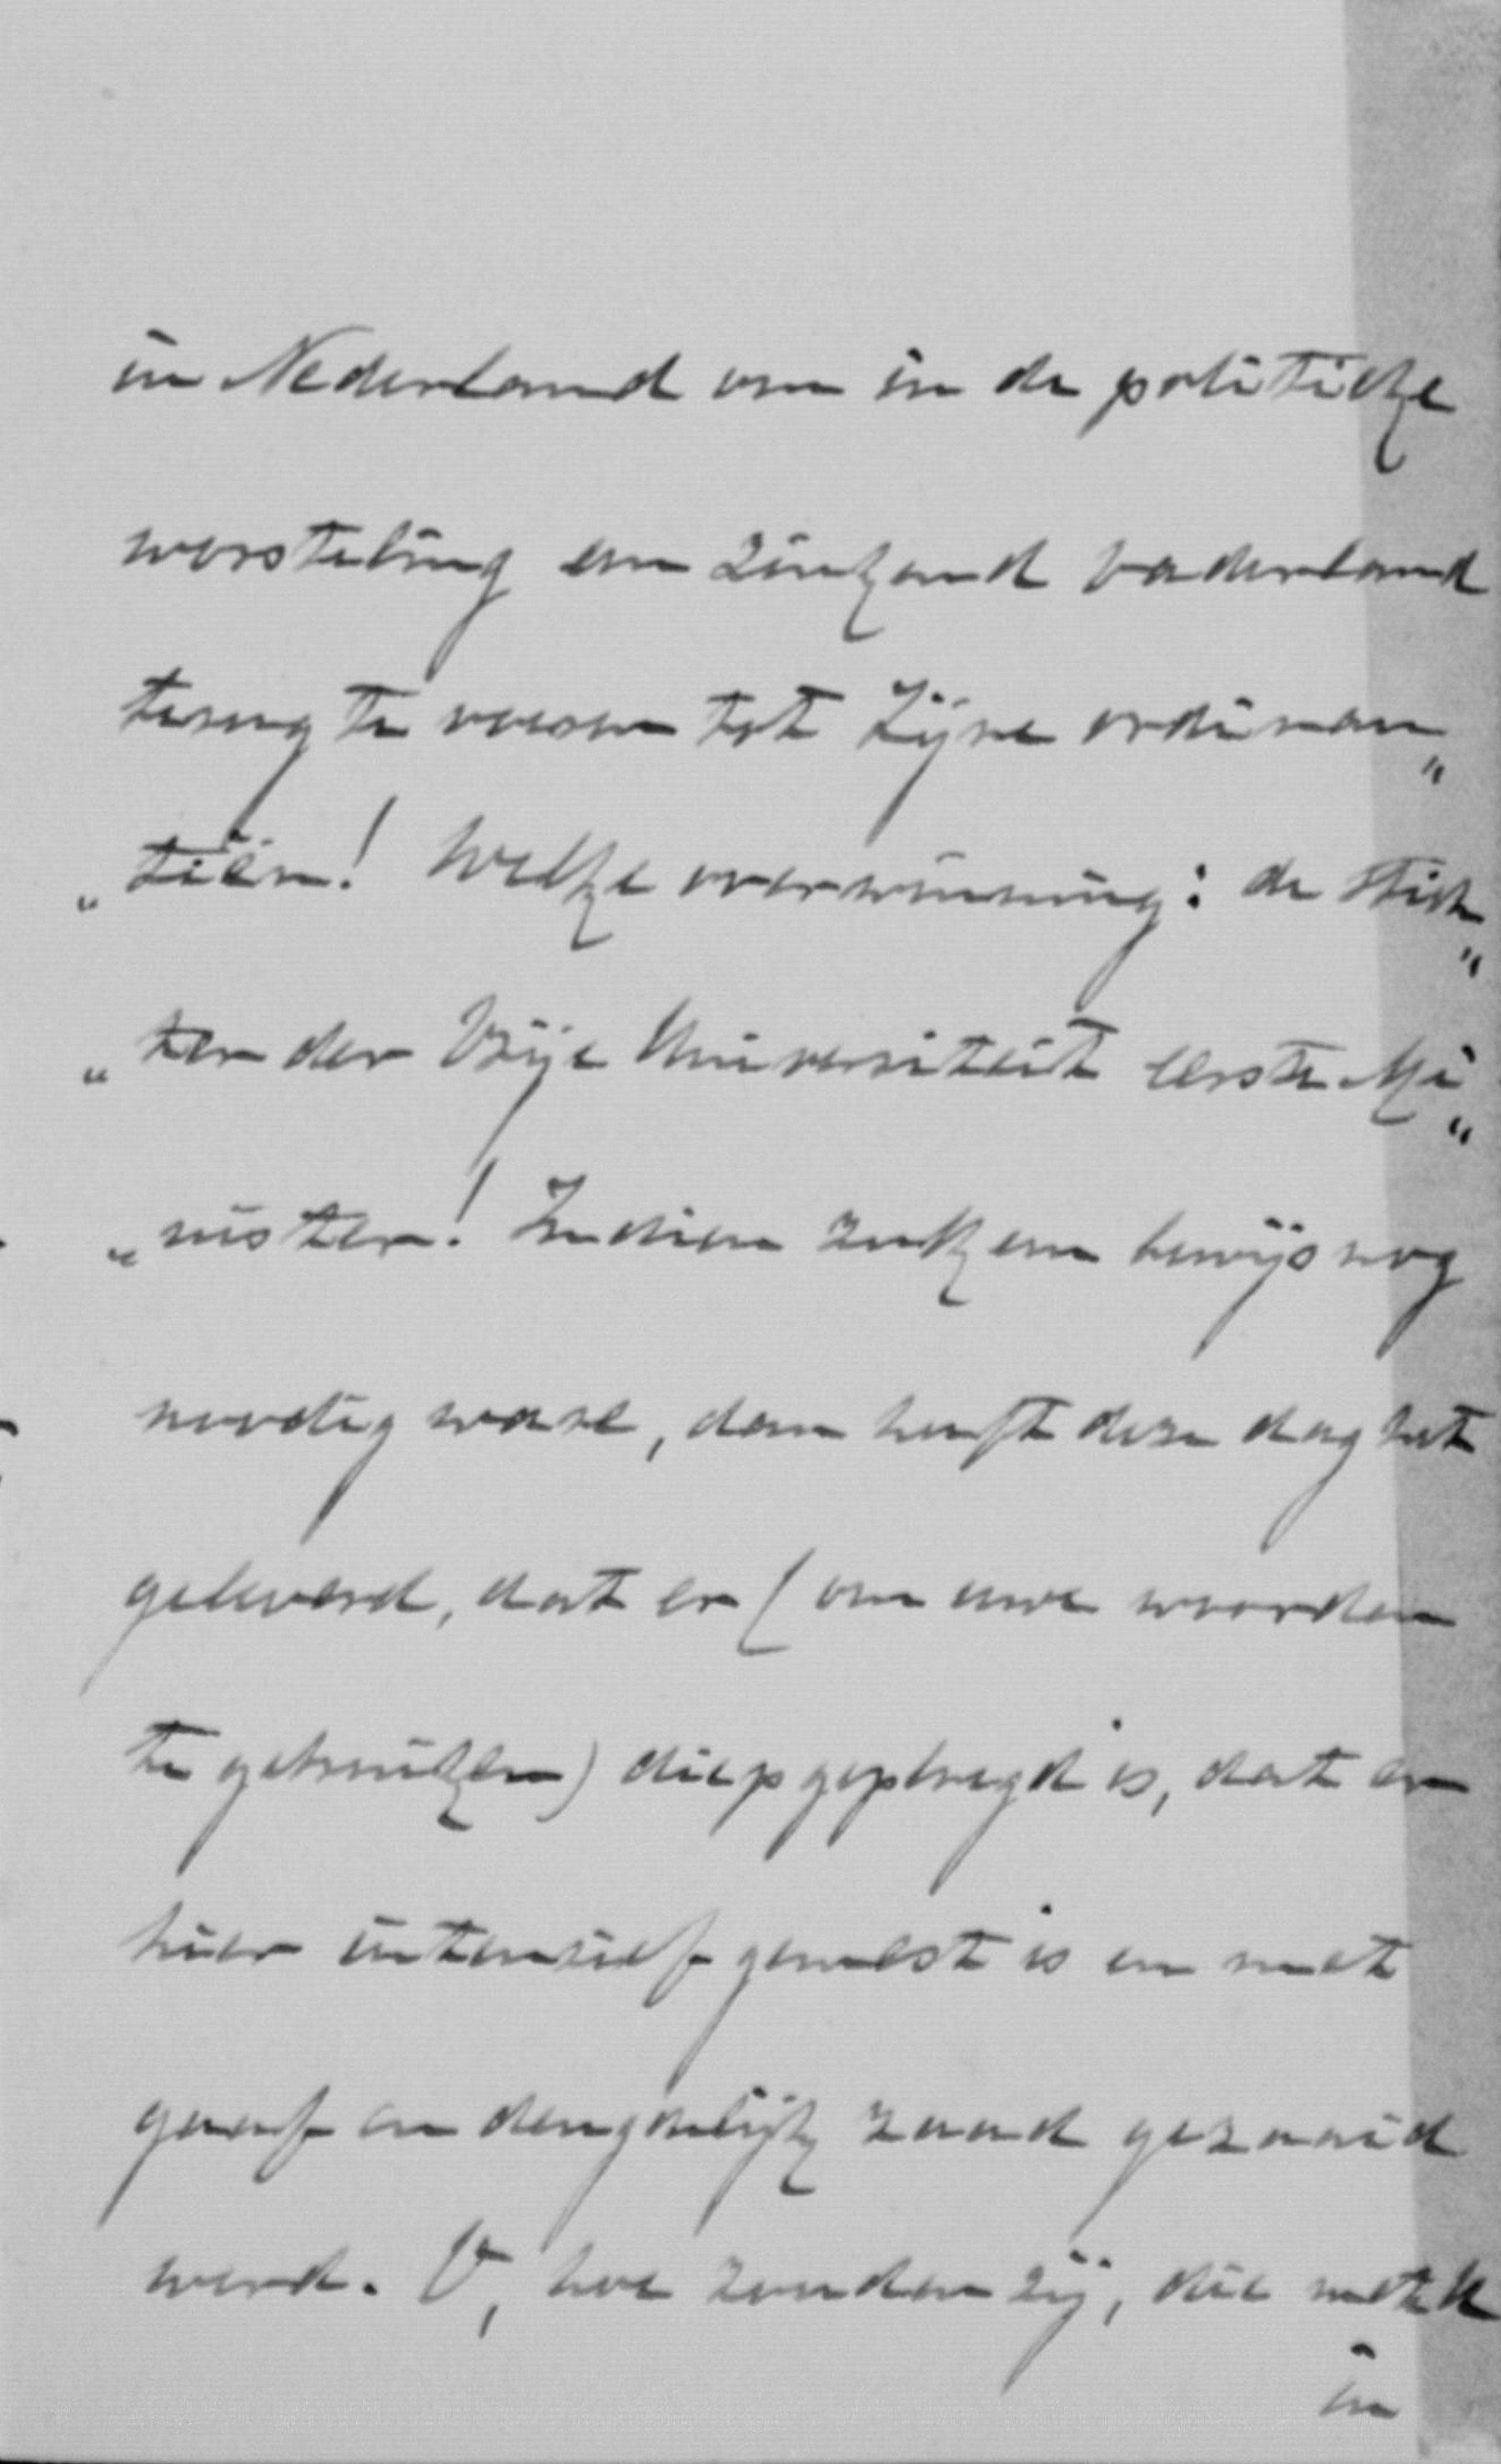 in Nederland om in de politieke
worsteling een zinkend vaderland
terug te voeren tot Zijne ordinan„
„tiën! Welke overwinning: de stich„
„ter der Vrije Universiteit eerste Mi„
„nister! Indien zulk een bewijs nog
noodig ware, dan heeft deze dag het
geleverd, dat er (om uwe woorden
te gebruiken) diep geploegd is, dat er
hier intensief gemest is en met
gaaf en deugdelijk zaad gezaaid
werd. O, hoe zouden zij, die met U
in